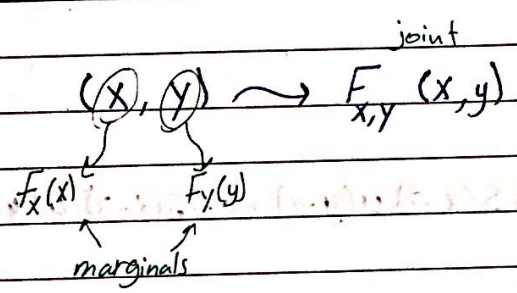 joint
(X, Y) ⟶ F_{X,Y} (x,y)
f_X(x) F_Y(y)
marginals